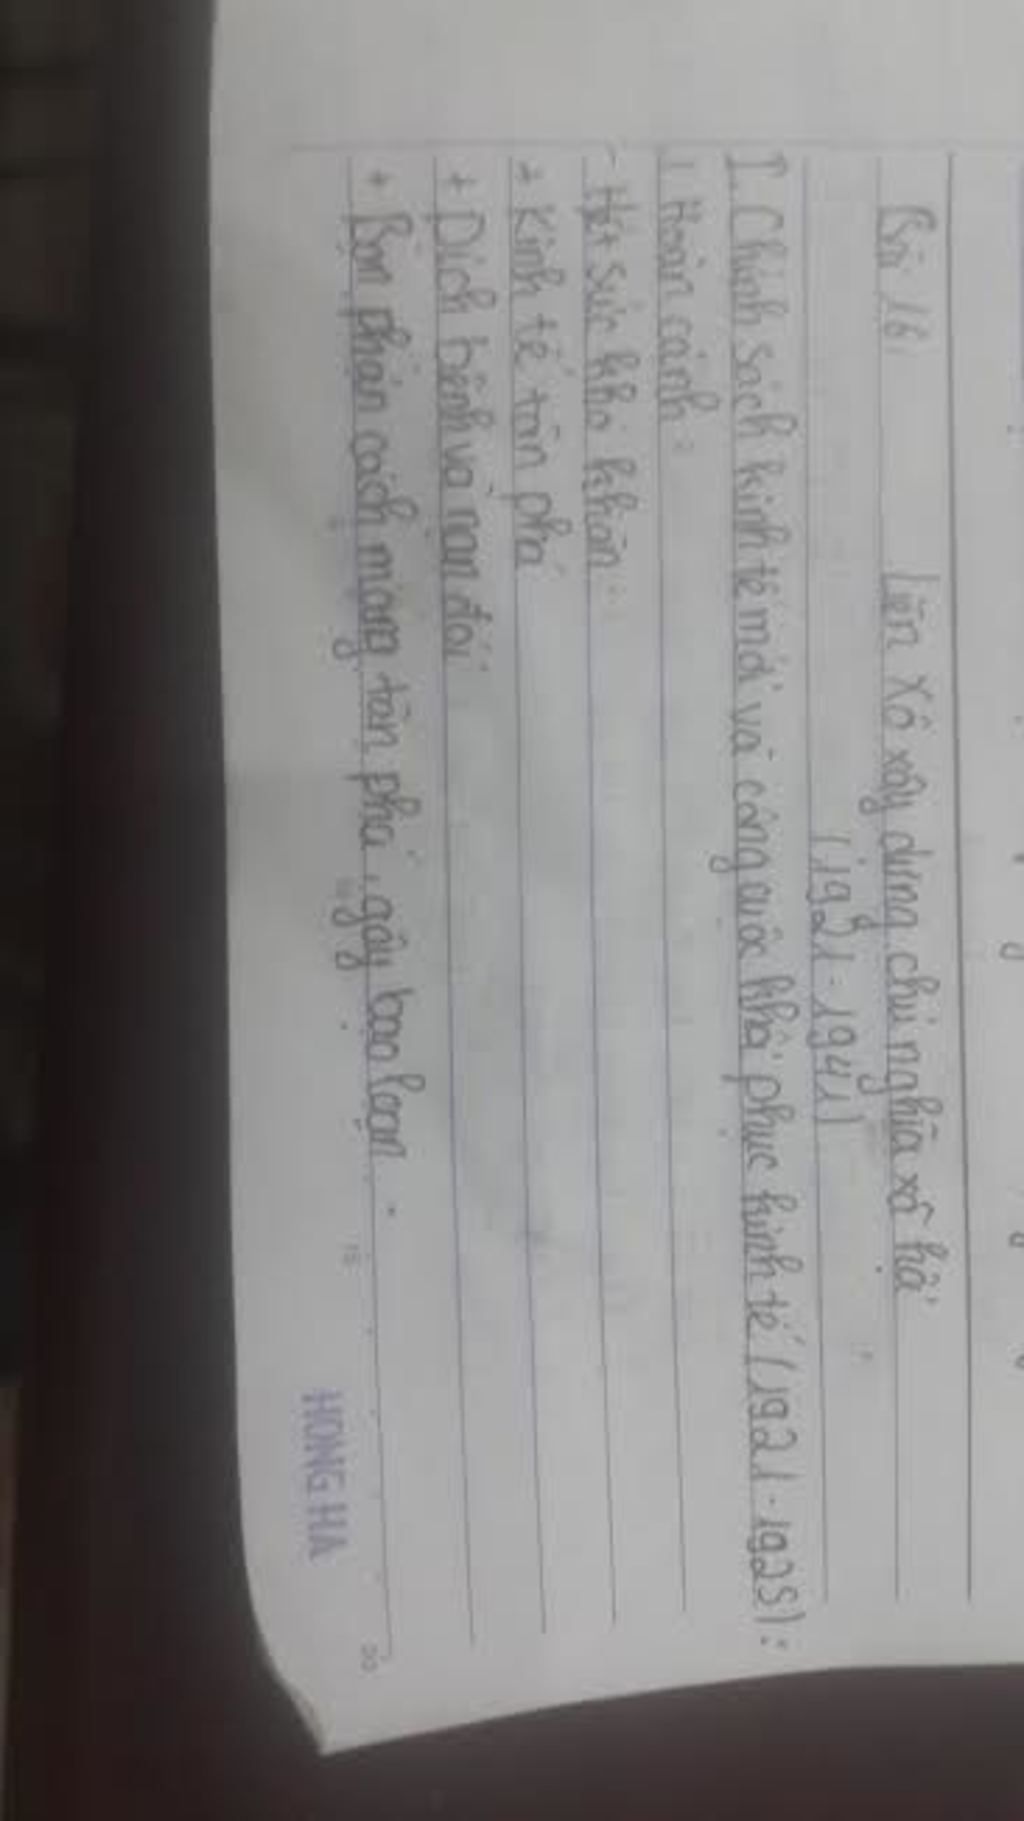 Bài 16. Liên Xô xây dựng chủ nghĩa xã hội
(1921-1941)
I. Chính sách kinh tế mới và công cuộc khôi phục kinh tế (1921-1925):
1 Hoàn cảnh:
- Hết sức khó khăn:
+ Kinh tế tàn phá
+ Dịch bệnh và nạn đói
+ Bọn phản cách mạng tàn phá, gây bạo loạn.
HONG HA